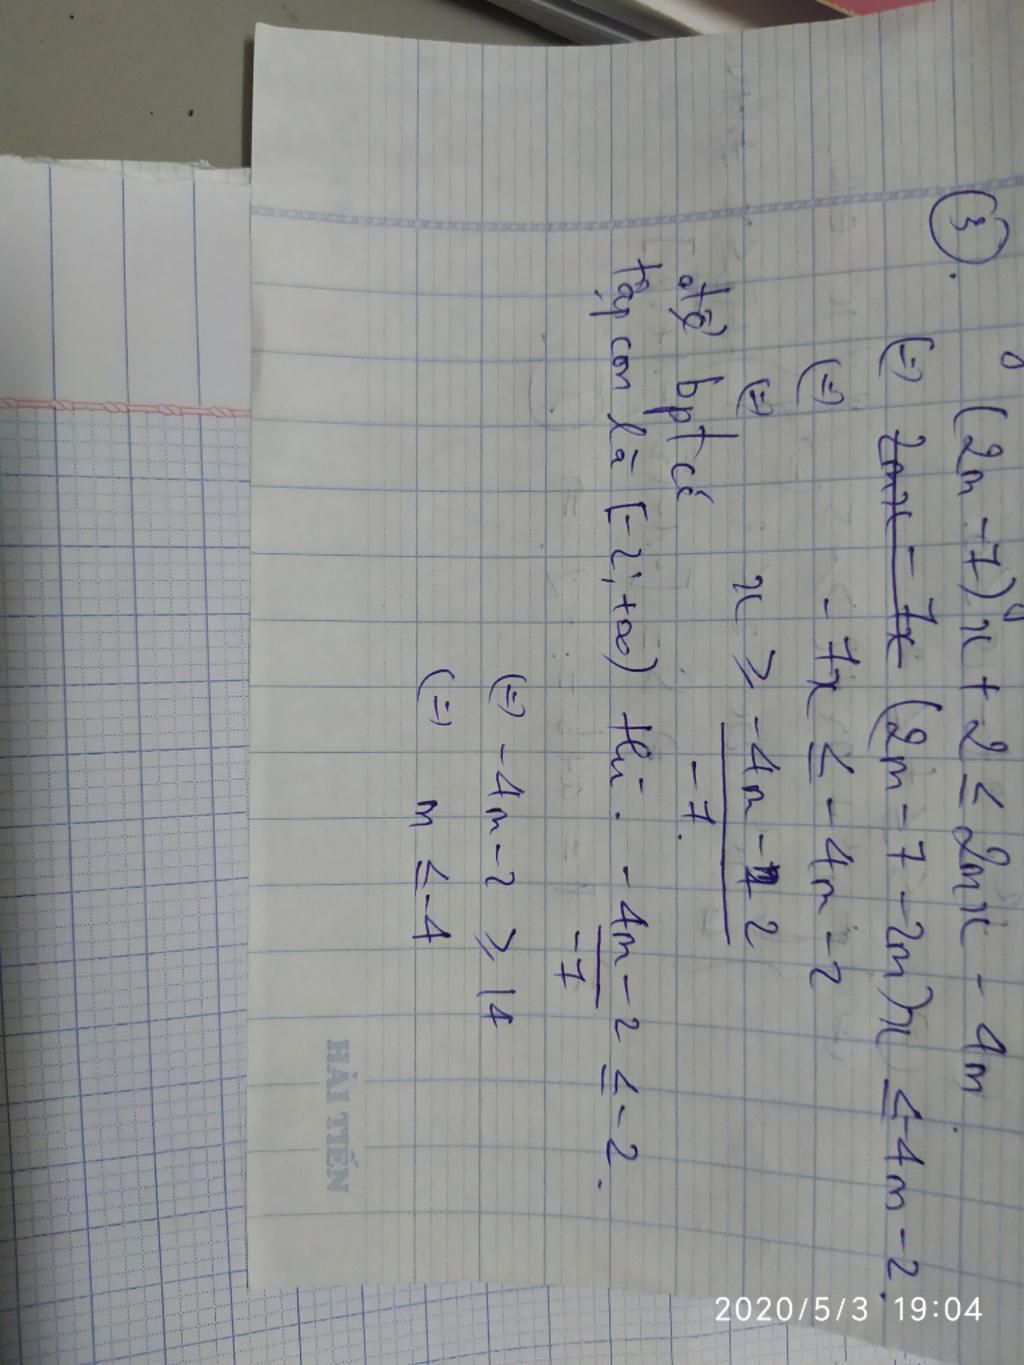 ③. (2m - 7)x + 2 ≤ 2mx - 4m
(=) 2mx - 7x (2m - 7 - 2m)x ≤ -4m - 2.
(=) - 7x ≤ - 4m - 2
(=) x ≥ -4m - 2
- 7.
để bpt có
tập con là [-2; +∞) thì. -4m - 2 ≤ -2.
-7
(=) -4m - 2 ≥ 14
(=) m ≤ -4
HẢI TIẾN
2020/5/3 19:04